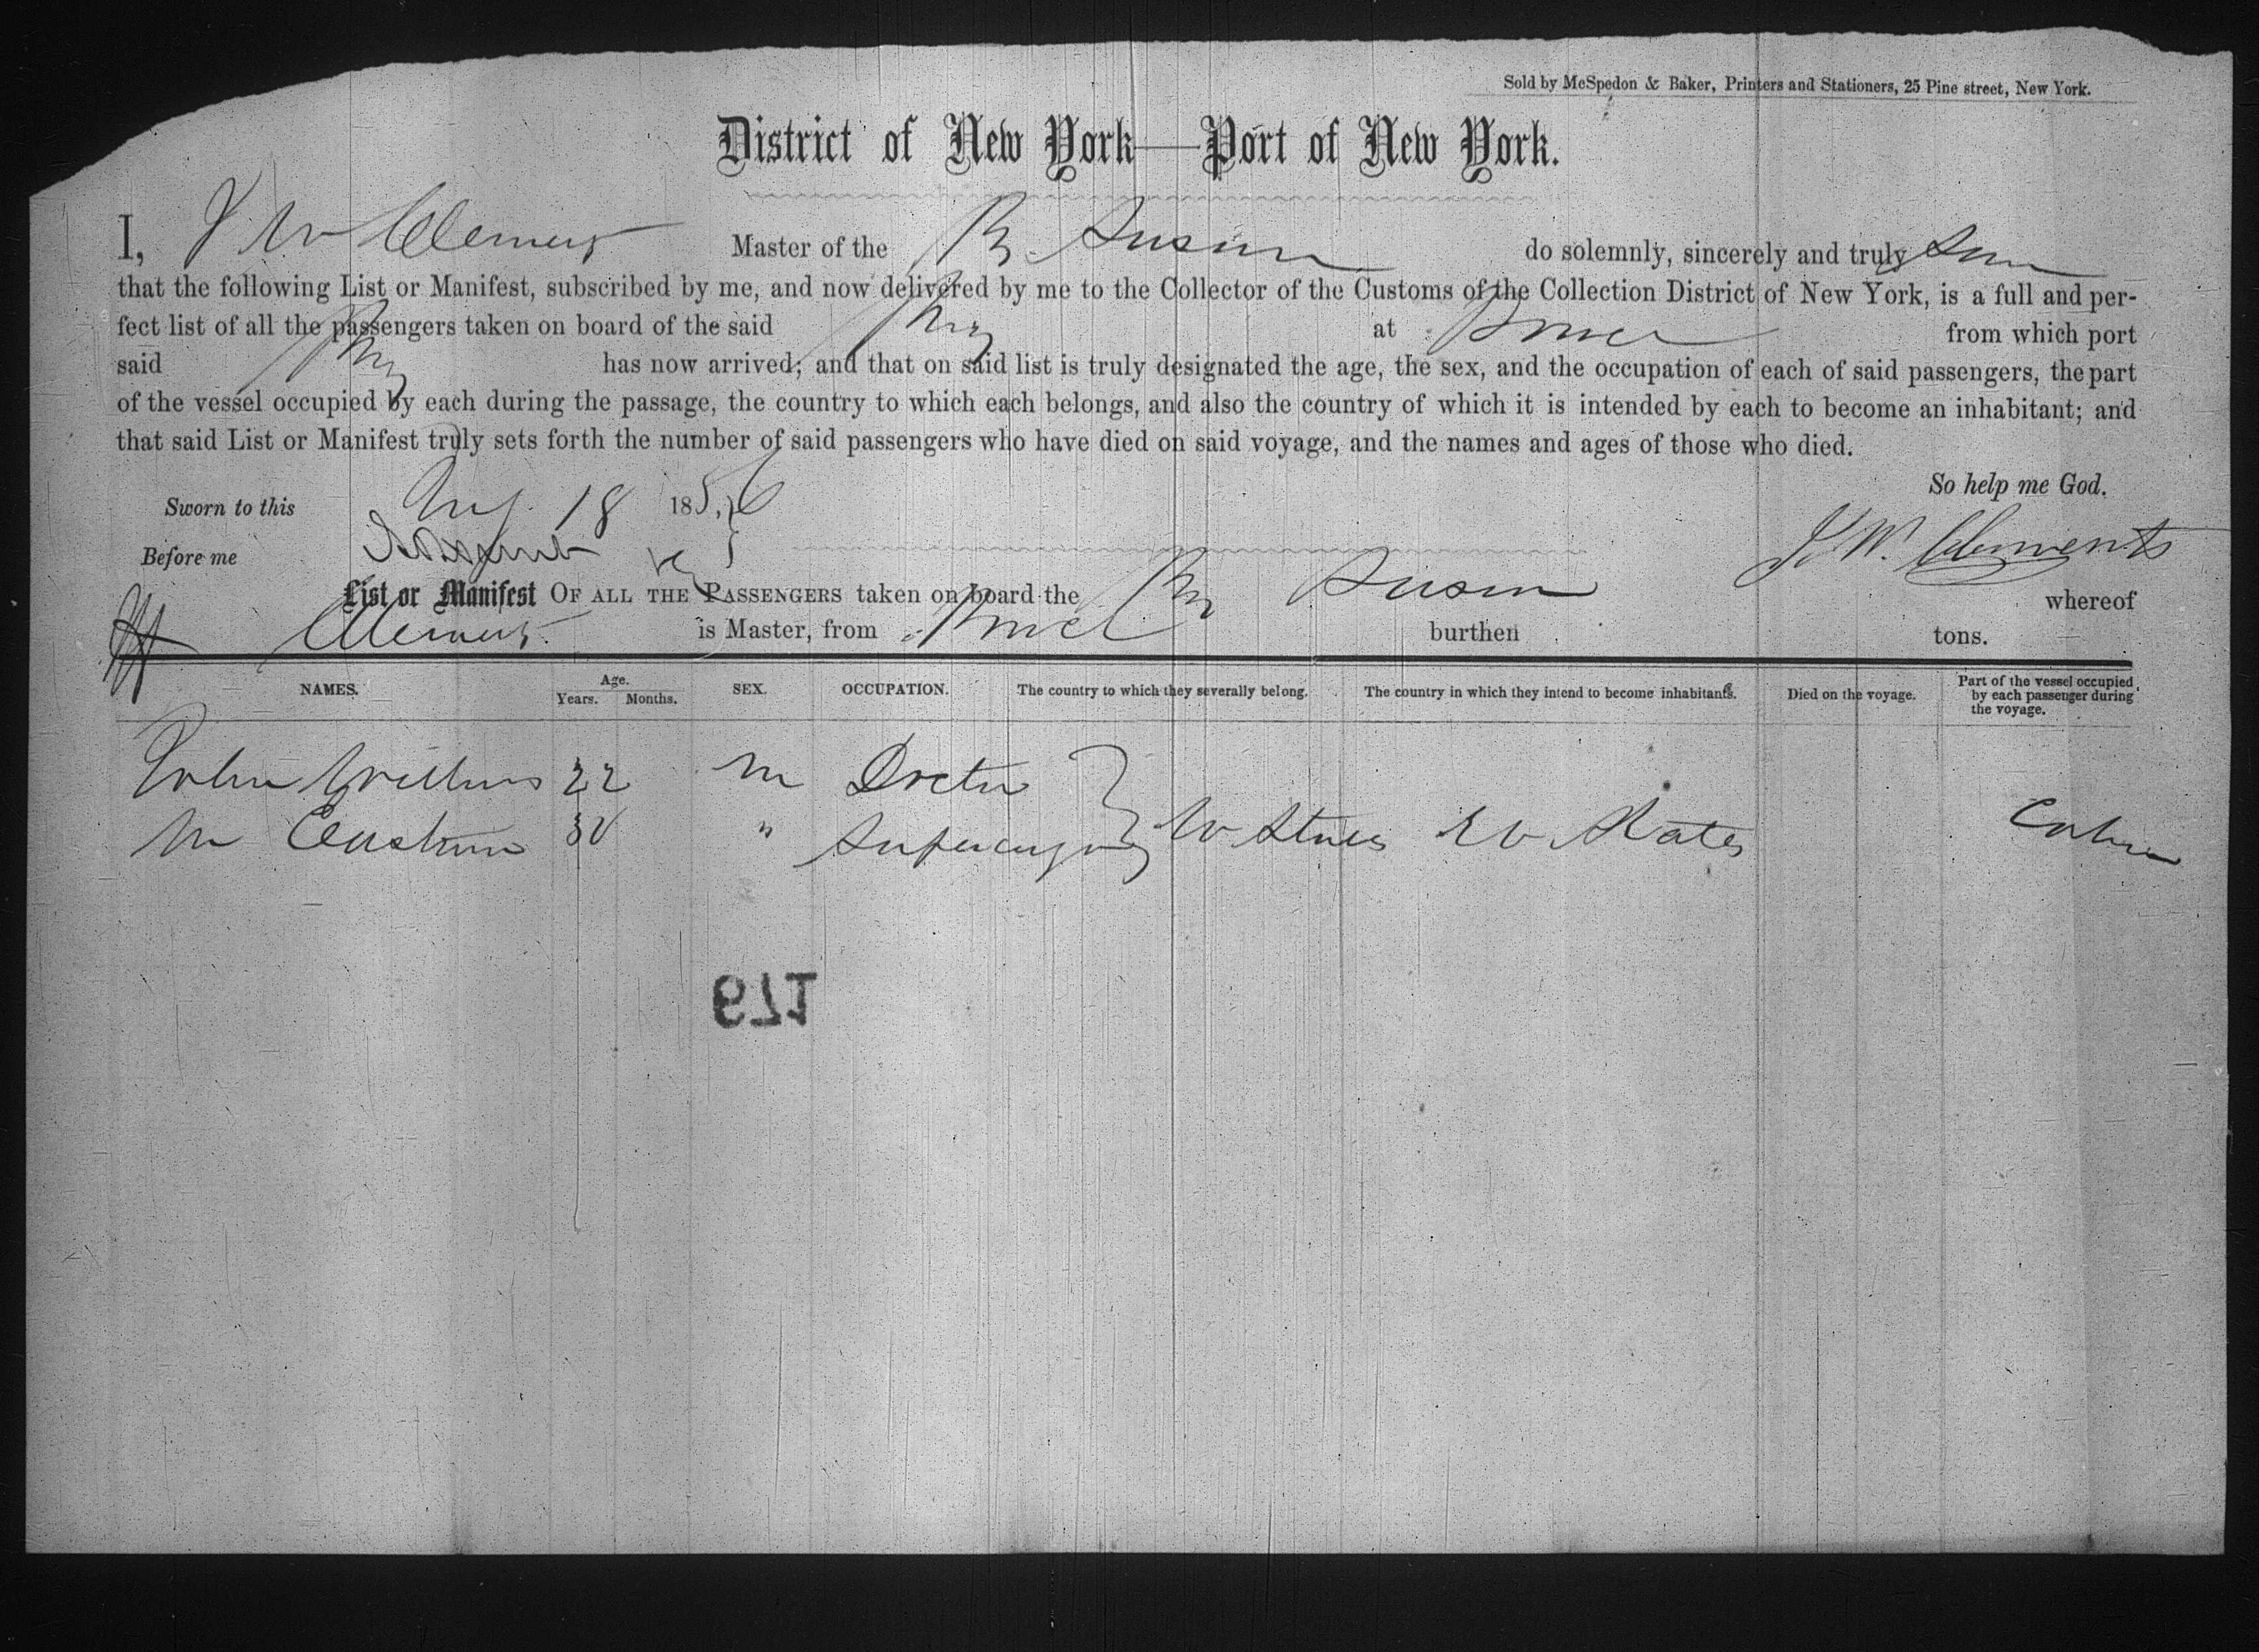 Sold by McSpedon & Baker, Printers and Stationers, 25 Pine street, New York.
District of New York—Port of New York.
I, J W Clements Master of the Br Susan do solemnly, sincerely and truly
that the following List or Manifest, subscribed by me, and now delivered by me to the Collector of the Customs of the Collection District of New York, is a full and per-
fect list of all the passengers taken on board of the said Brig at from which port
said Brig has now arrived; and that on said list is truly designated the age, the sex, and the occupation of each of said passengers, the part
of the vessel occupied by each during the passage, the country to which each belongs, and also the country of which it is intended by each to become an inhabitant; and
that said List or Manifest truly sets forth the number of said passengers who have died on said voyage, and the names and ages of those who died.
So help me God.
Sworn to this 18 1856
Before me
J. W. Clements
List or Manifest OF ALL THE PASSENGERS taken on board the Brig Susan whereof
Clements is Master, from burthen tons.
NAMES. Age. Years. Months. SEX. OCCUPATION. The country to which they severally belong. The country in which they intend to become inhabitants. Died on the voyage. Part of the vessel occupied by each passenger during the voyage.
John 22 m Doctor
" Supercargo U States U States Cabin
179